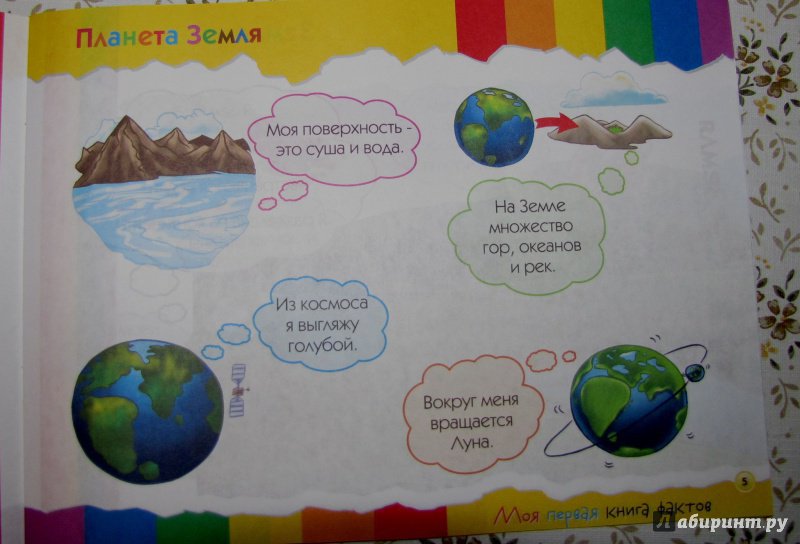 Планета Земля
Моя поверхность -
это суша и вода.
На Земле
множество
гор, океанов
и рек.
Из космоса
я выгляжу
голубой.
Вокруг меня
вращается
Луна.
5
Моя первая книга фактов
Лабиринт.ру